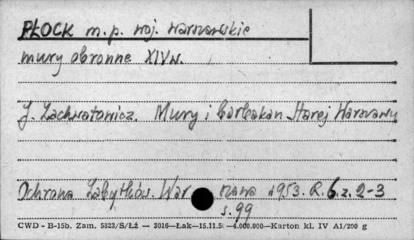 PŁOCK m.p. woj. warszawskie
mury obronne XIVw.
J. Zachwatowicz. Mury i barbakan Starej Warszawy
Ochrona Zabytków. War szawa 1953. R. 6. z. 2-3
s. 99
CWD - B-15b. Zam. 5823/S/Łż — 3016—Łak—15.11.5 4.000.000—Karton kl. IV A1/200 g